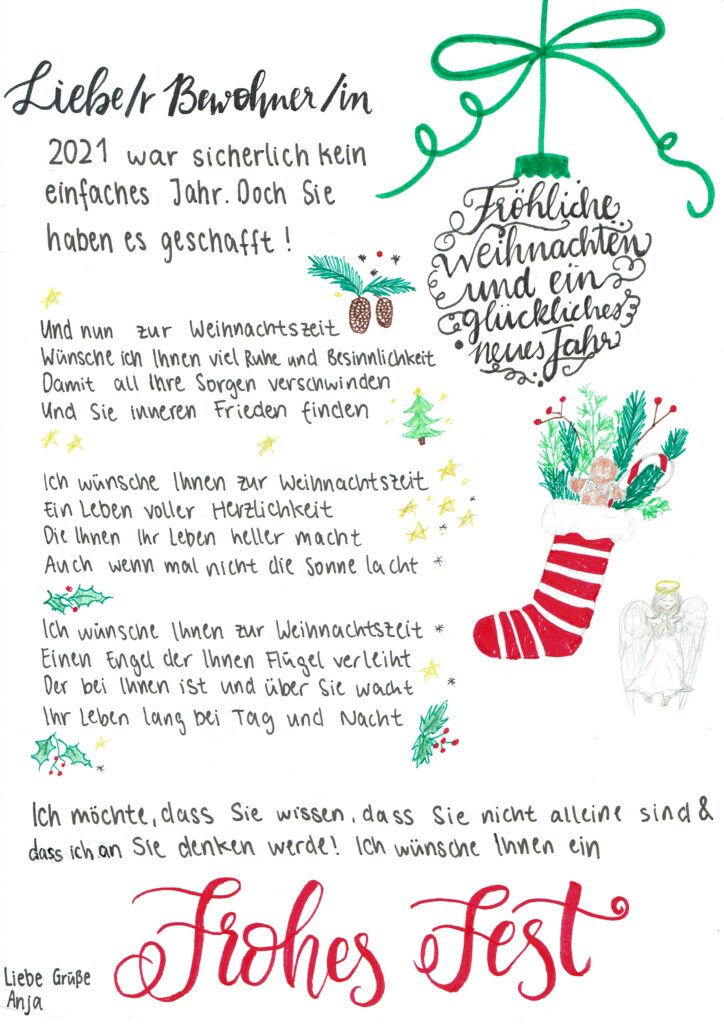 Liebe/r Bewohner/in
2021 war sicherlich kein
einfaches Jahr. Doch Sie
haben es geschafft!
Fröhliche
Weihnachten
und ein
glückliches
neues Jahr
Und nun zur Weihnachtszeit
Wünsche ich Ihnen viel Ruhe und Besinnlichkeit
Damit all Ihre Sorgen verschwinden
Und Sie inneren Frieden finden
Ich wünsche Ihnen zur Weihnachtszeit
Ein Leben voller Herzlichkeit
Die Ihnen Ihr Leben heller macht
Auch wenn mal nicht die Sonne lacht
Ich wünsche Ihnen zur Weihnachtszeit
Einen Engel der Ihnen Flügel verleiht
Der bei Ihnen ist und über Sie wacht
Ihr Leben lang bei Tag und Nacht
Ich möchte, dass Sie wissen, dass Sie nicht alleine sind &
dass ich an Sie denken werde! Ich wünsche Ihnen ein
Frohes Fest
Liebe Grüße
Anja